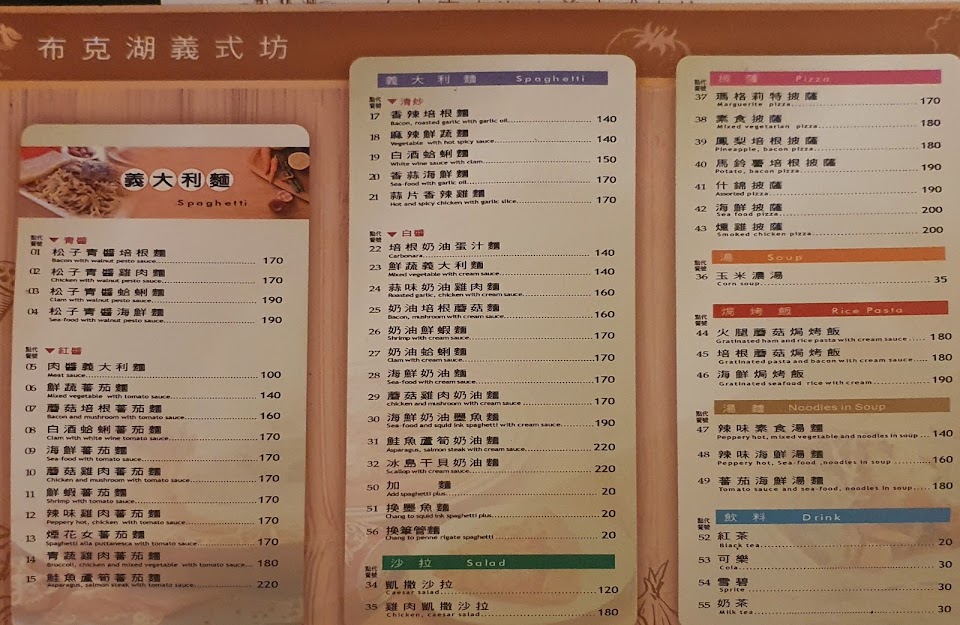 布克湖義式坊
義大利麵
Spaghetti
點代餐號 ▼青醬
01 松子青醬培根麵 170
Bacon with walnut pesto sauce
02 松子青醬雞肉麵 170
Chicken with walnut pesto sauce
03 松子青醬蛤蜊麵 190
Clam with walnut pesto sauce
04 松子青醬海鮮麵 190
Sea-food with walnut pesto sauce
點代餐號 ▼紅醬
05 肉醬義大利麵 100
Meat sauce
06 鮮蔬蕃茄麵 140
Mixed vegetable with tomato sauce
07 蘑菇培根蕃茄麵 160
Bacon and mushroom with tomato sauce
08 白酒蛤蜊蕃茄麵 170
Clam with white wine tomato sauce
09 海鮮蕃茄麵 170
Sea-food with tomato sauce
10 蘑菇雞肉蕃茄麵 170
Chicken and mushroom with tomato sauce
11 鮮蝦蕃茄麵 170
Shrimp with tomato sauce
12 辣味雞肉蕃茄麵 170
Peppery hot, chicken with tomato sauce
13 煙花女蕃茄麵 170
Spaghetti alla puttanesca with tomato sauce
14 青蔬雞肉蕃茄麵 180
Broccoli, chicken and mixed vegetable with tomato sauce
15 鮭魚蘆筍蕃茄麵 220
Asparagus, salmon steak with tomato sauce
義大利麵 Spaghetti
點代餐號 ▼清炒
17 香辣培根麵 140
Bacon, roasted garlic with garlic oil
18 麻辣鮮蔬麵 140
Vegetable with hot spicy sauce
19 白酒蛤蜊麵 150
White wine sauce with clam
20 香蒜海鮮麵 170
Sea-food with garlic oil
21 蒜片香辣雞麵 170
Hot and spicy chicken with garlic slice
點代餐號 ▼白醬
22 培根奶油蛋汁麵 140
Carbonara
23 鮮蔬義大利麵 140
Mixed vegetable with cream sauce
24 蒜味奶油雞肉麵 160
Roasted garlic, chicken with cream sauce
25 奶油培根蘑菇麵 160
Bacon, mushroom with cream sauce
26 奶油鮮蝦麵 170
Shrimp with cream sauce
27 奶油蛤蜊麵 170
Clam with cream sauce
28 海鮮奶油麵 170
Sea-food with cream sauce
29 蘑菇雞肉奶油麵 170
chicken and mushroom with cream sauce
30 海鮮奶油墨魚麵 190
Sea-food and squid ink spaghetti with cream sauce
31 鮭魚蘆筍奶油麵 220
Asparagus, salmon steak with cream sauce
32 冰島干貝奶油麵 220
Scallop with cream sauce
50 加 麵 20
Add spaghetti plus
51 換墨魚麵 20
Chang to squid ink spaghetti plus
56 換筆管麵 20
Chang to penne rigate spaghetti
沙拉 Salad
點代餐號
34 凱撒沙拉 120
Caesar salad
35 雞肉凱撒沙拉 180
Chicken, caesar salad
披薩 Pizza
點代餐號
37 瑪格莉特披薩 170
Marguerite pizza
38 素食披薩 180
Mixed vegetarian pizza
39 鳳梨培根披薩 180
Pineapple, bacon pizza
40 馬鈴薯培根披薩 190
Potato, bacon pizza
41 什錦披薩 190
Assorted pizza
42 海鮮披薩 200
Sea food pizza
43 燻雞披薩 200
Smoked chicken pizza
湯 Soup
點代餐號
36 玉米濃湯 35
Corn soup
焗烤飯 Rice Pasta
點代餐號
44 火腿蘑菇焗烤飯 180
Gratinated ham and rice pasta with cream sauce
45 培根蘑菇焗烤飯 180
Gratinated pasta and bacon with cream sauce
46 海鮮焗烤飯 190
Gratinated seafood rice with cream
湯麵 Noodles in Soup
點代餐號
47 辣味素食湯麵 140
Peppery hot, mixed vegetable and noodles in soup
48 辣味海鮮湯麵 160
Peppery hot, Sea-food ,noodles in soup
49 蕃茄海鮮湯麵 180
Tomato sauce and sea-food, noodles in soup
飲料 Drink
點代餐號
52 紅茶 20
Black tea
53 可樂 30
Cola
54 雪碧 30
Sprite
55 奶茶 30
Milk tea